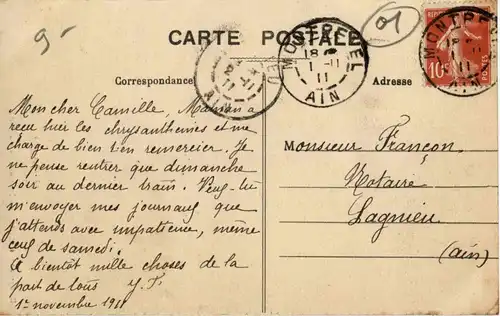 9-
01
CARTE POSTALE
Correspondance
Adresse
MONTREVEL
18
1 - 11
11
AIN
2 - 11
11
AIN
10c
POSTES
Mon cher Camille, Maman a
reçu hier les chrysanthèmes et me
charge de bien t'en remercier. Je
ne pense rentrer que dimanche
soir au dernier train. Veux-tu
m'envoyer mes journaux que
j'attends avec impatience, même
ceux de samedi.
A bientôt mille choses de la
part de tous Y.F.
1er novembre 1911
Monsieur Françon
Notaire
Lagnieu
(Ain)